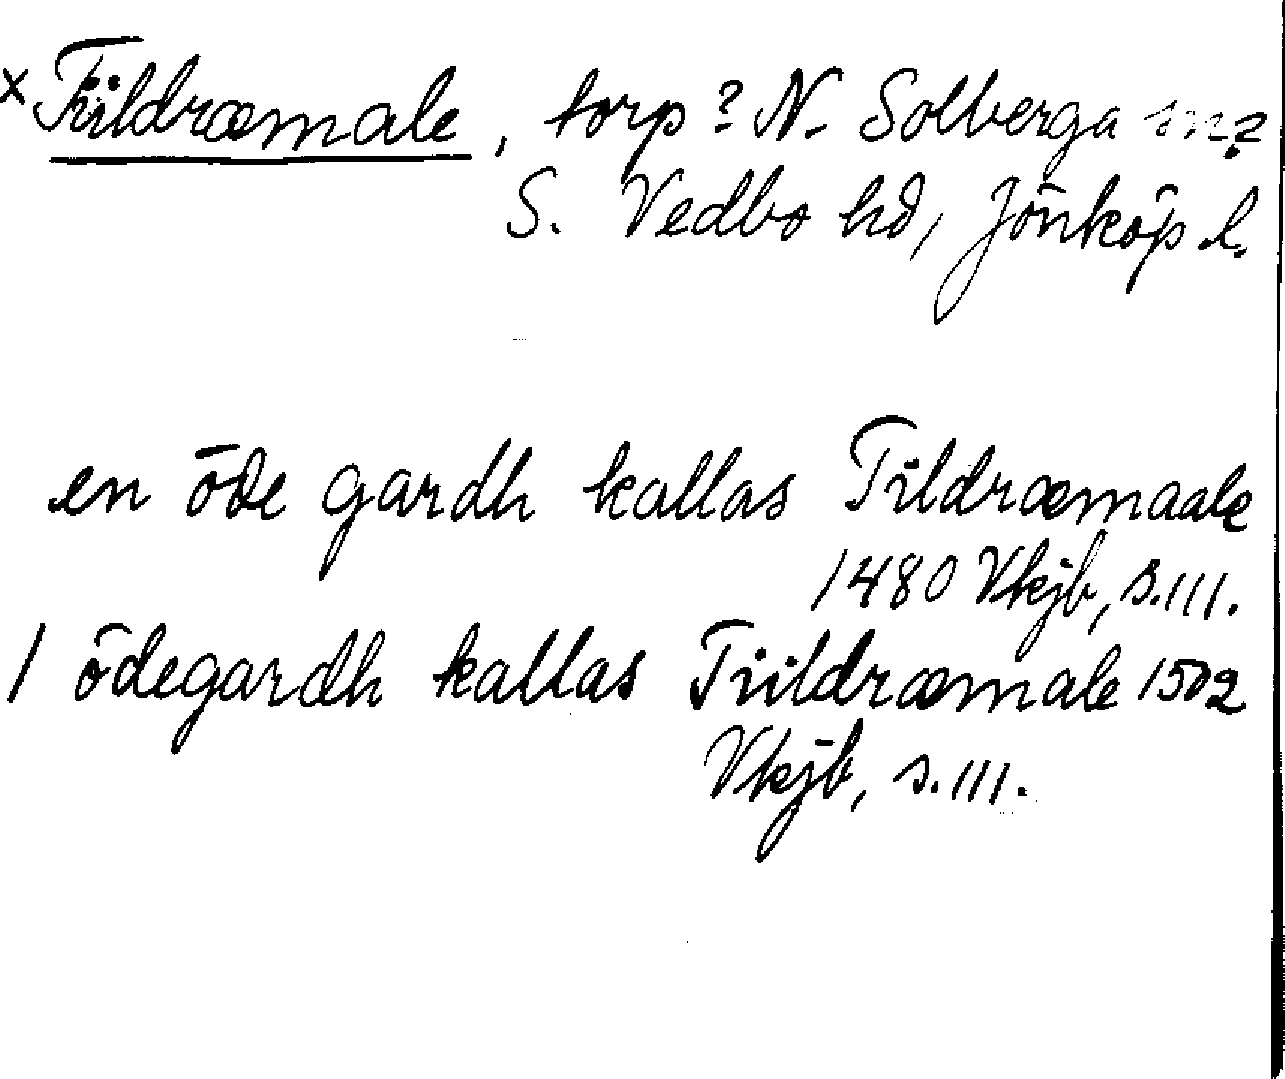 × Tiildræmale, torp? N. Solberga sn?
S. Vedbo hd, Jönköp. l.
en öde gardh kallas Tildræmaale
1480 Vkjb, s. 111.
1 ödegardh kallas Tiildræmale 1502
Vkjb, s. 111.